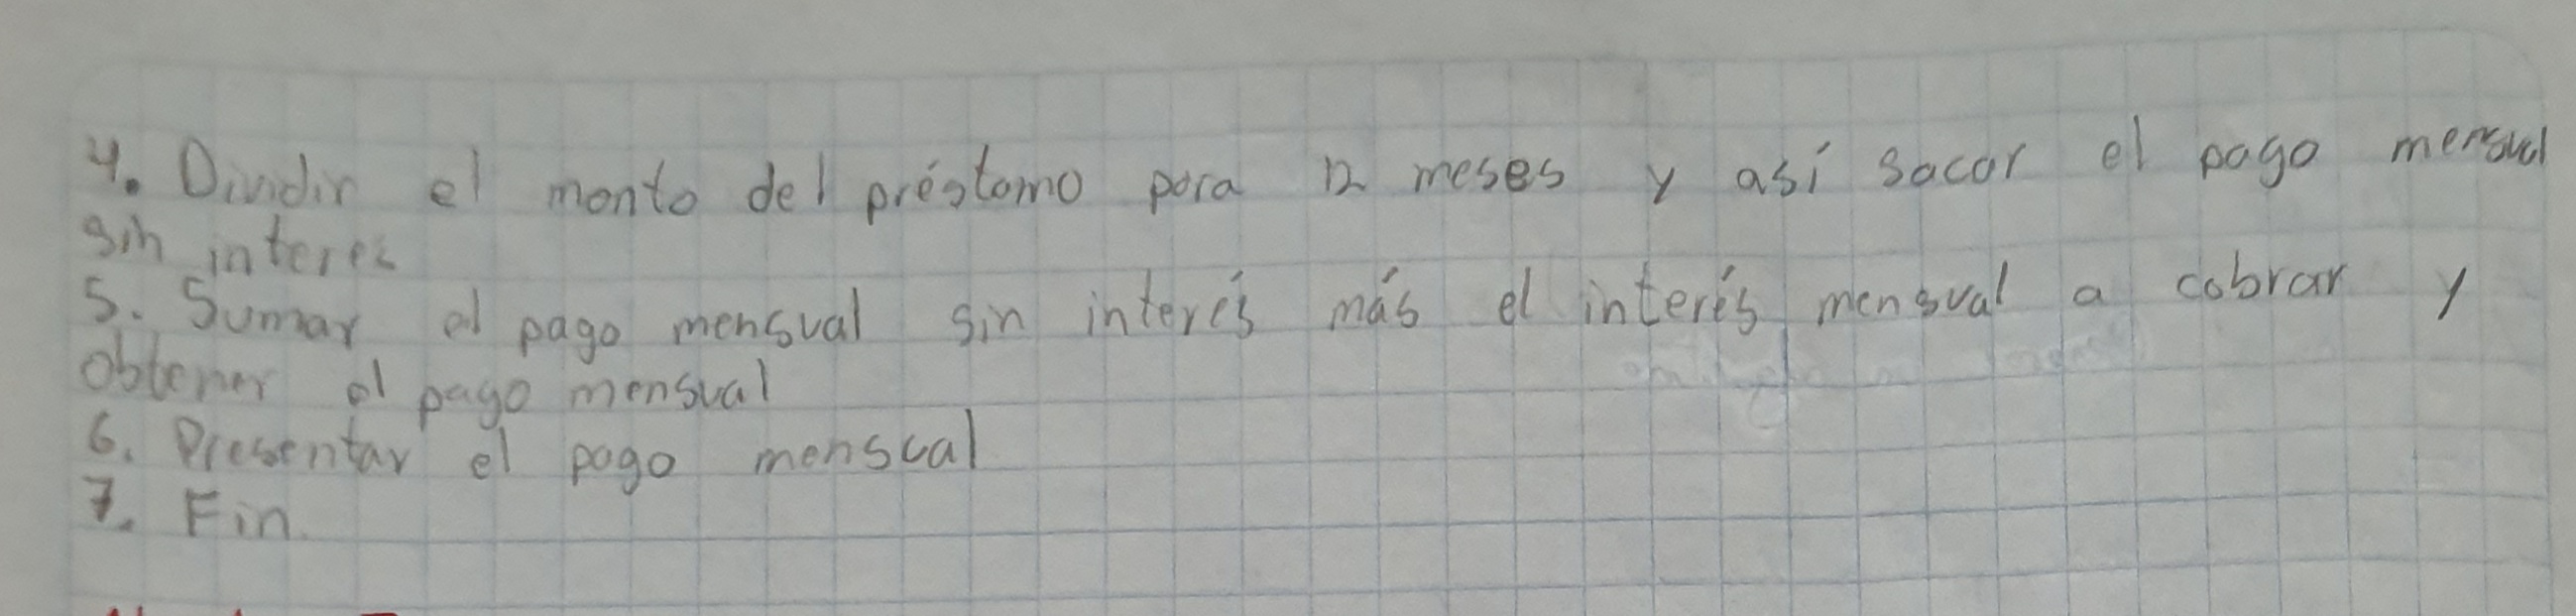 4. Dividir el monto del préstamo para 12 meses y así sacar el pago mensual
sin interes
5. Sumar el pago mensual sin interés más el interés mensual a cobrar y
obtener el pago mensual
6. Presentar el pago mensual
7. Fin.